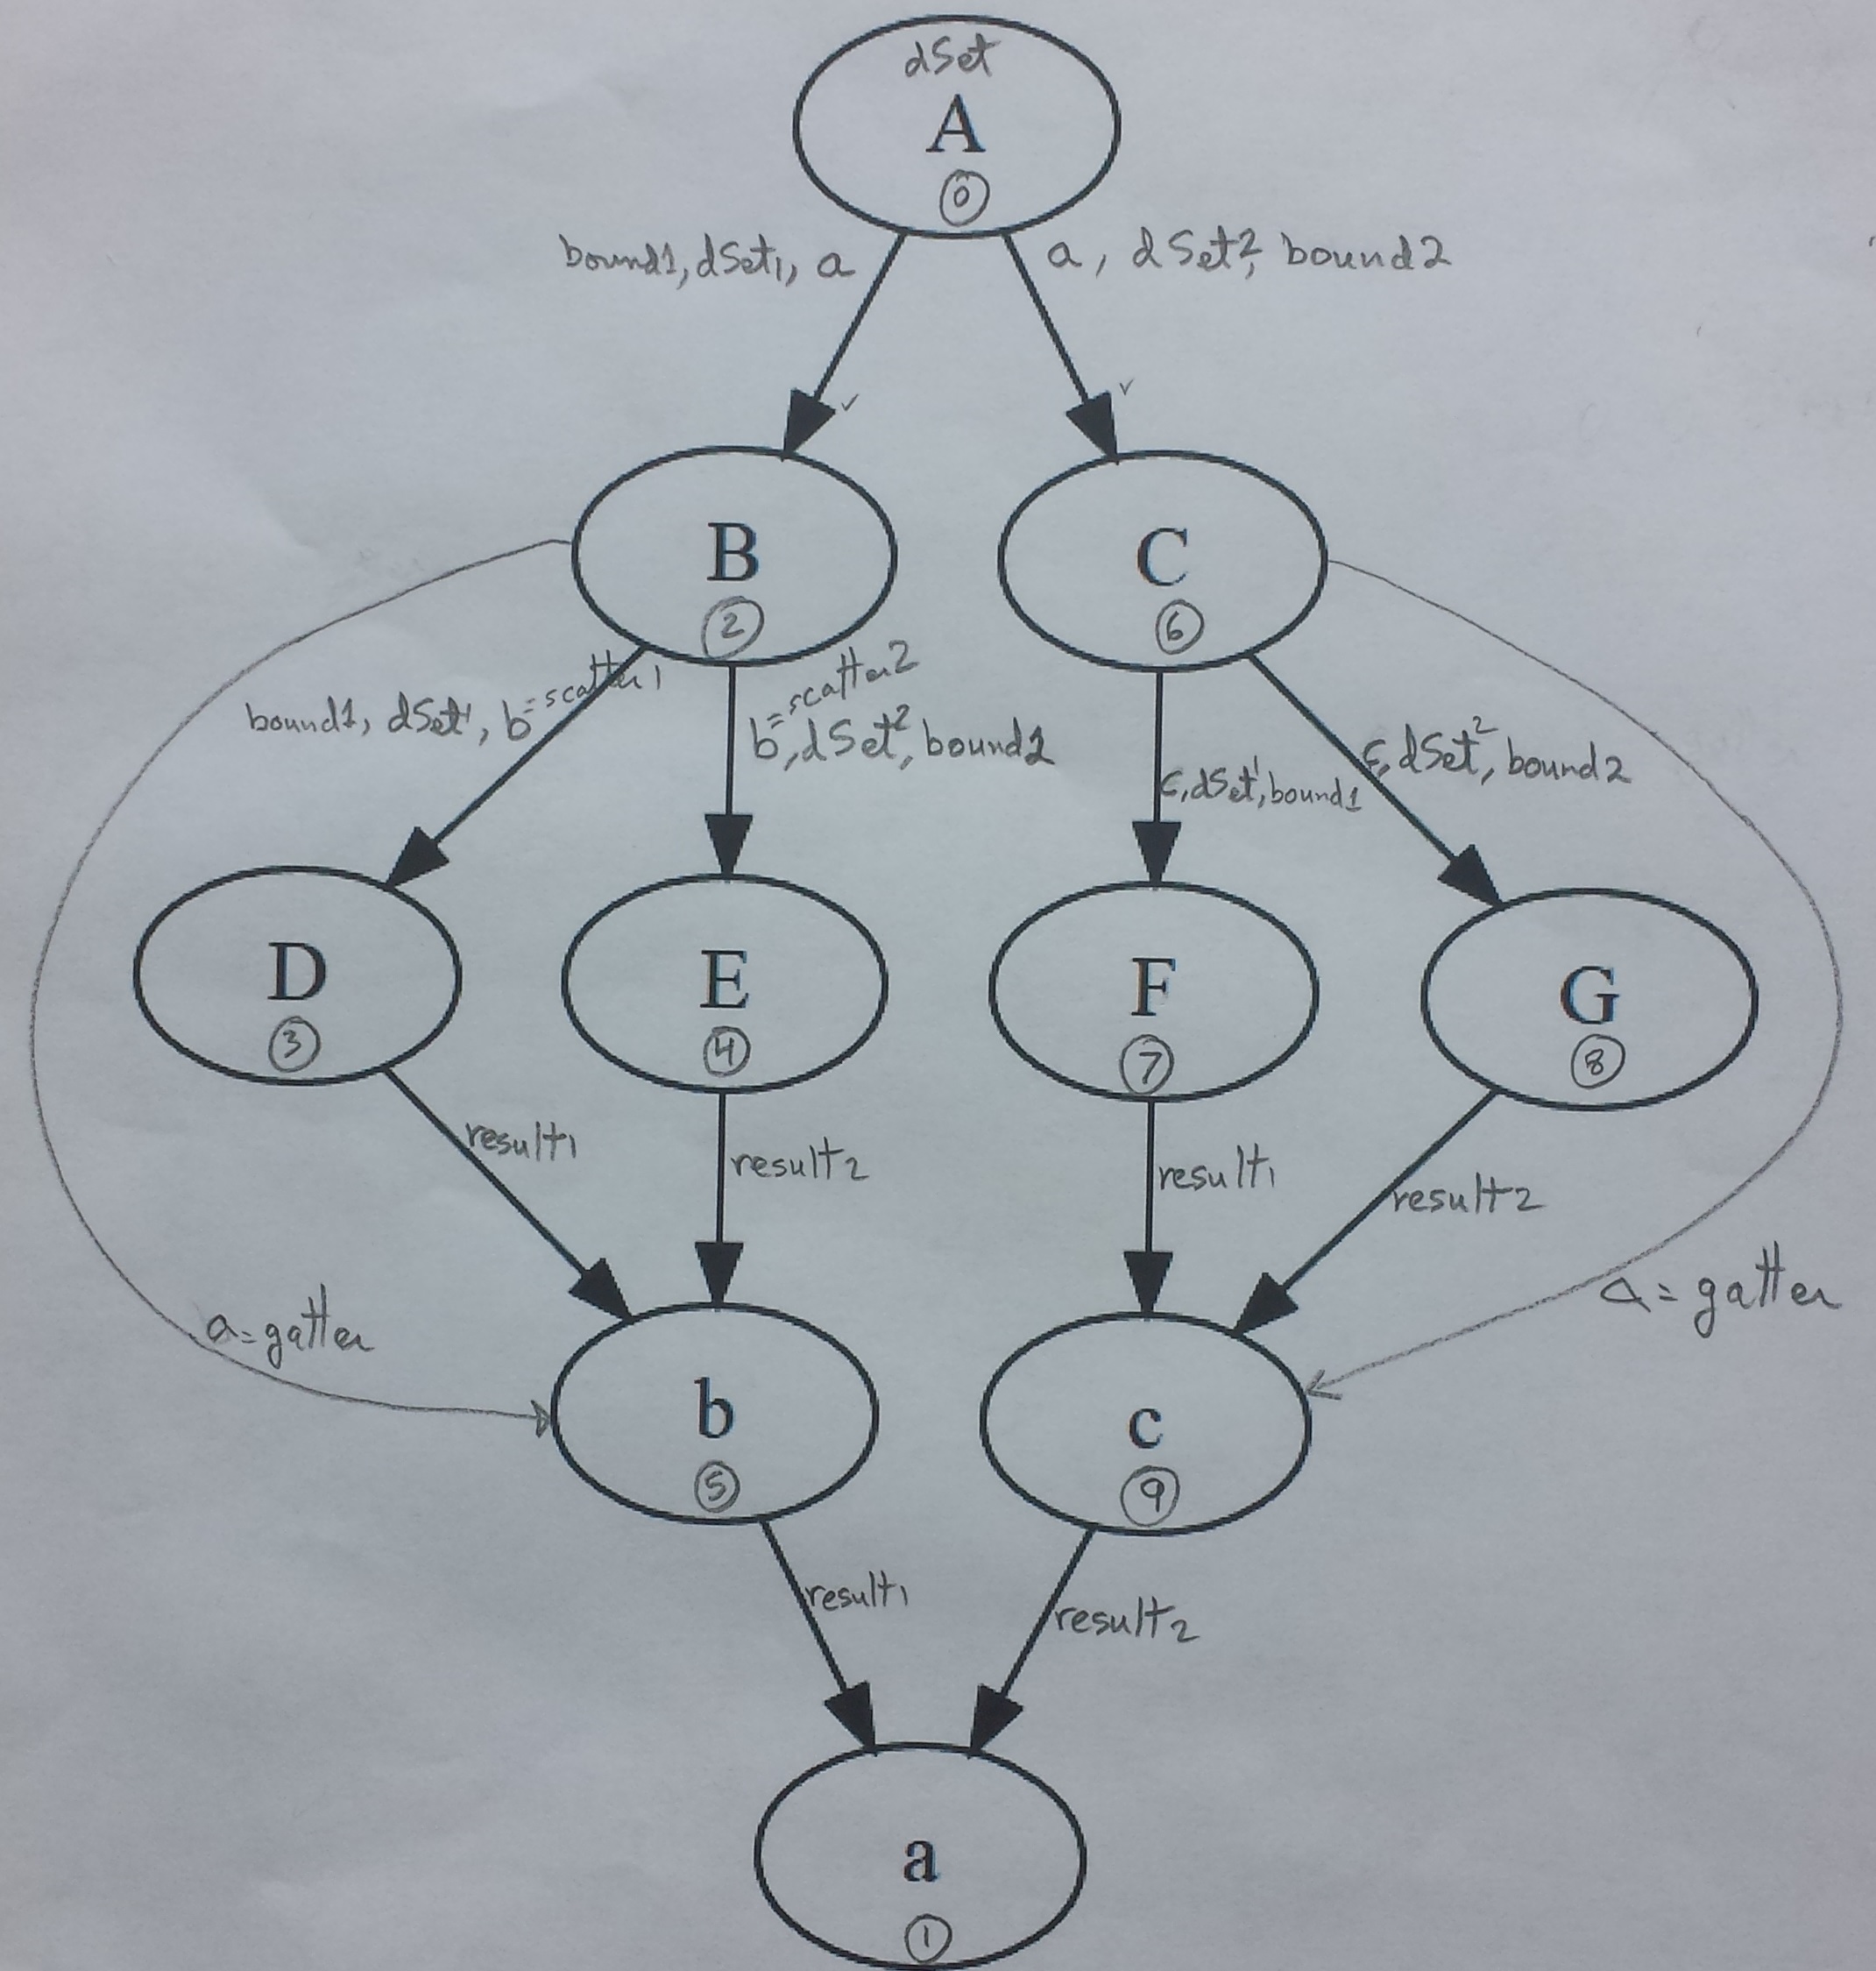 dSet
A
0
bound1, dSet1, a
a, dSet2, bound2
B
2
C
6
bound1, dSet1, b=scatter1
b=scatter2
, dSet2, bound2
c, dSet1, bound1
c, dSet2, bound2
D
3
E
4
F
7
G
8
result1
result2
result1
result2
a=gatter
a=gatter
b
5
c
9
result1
result2
a
1